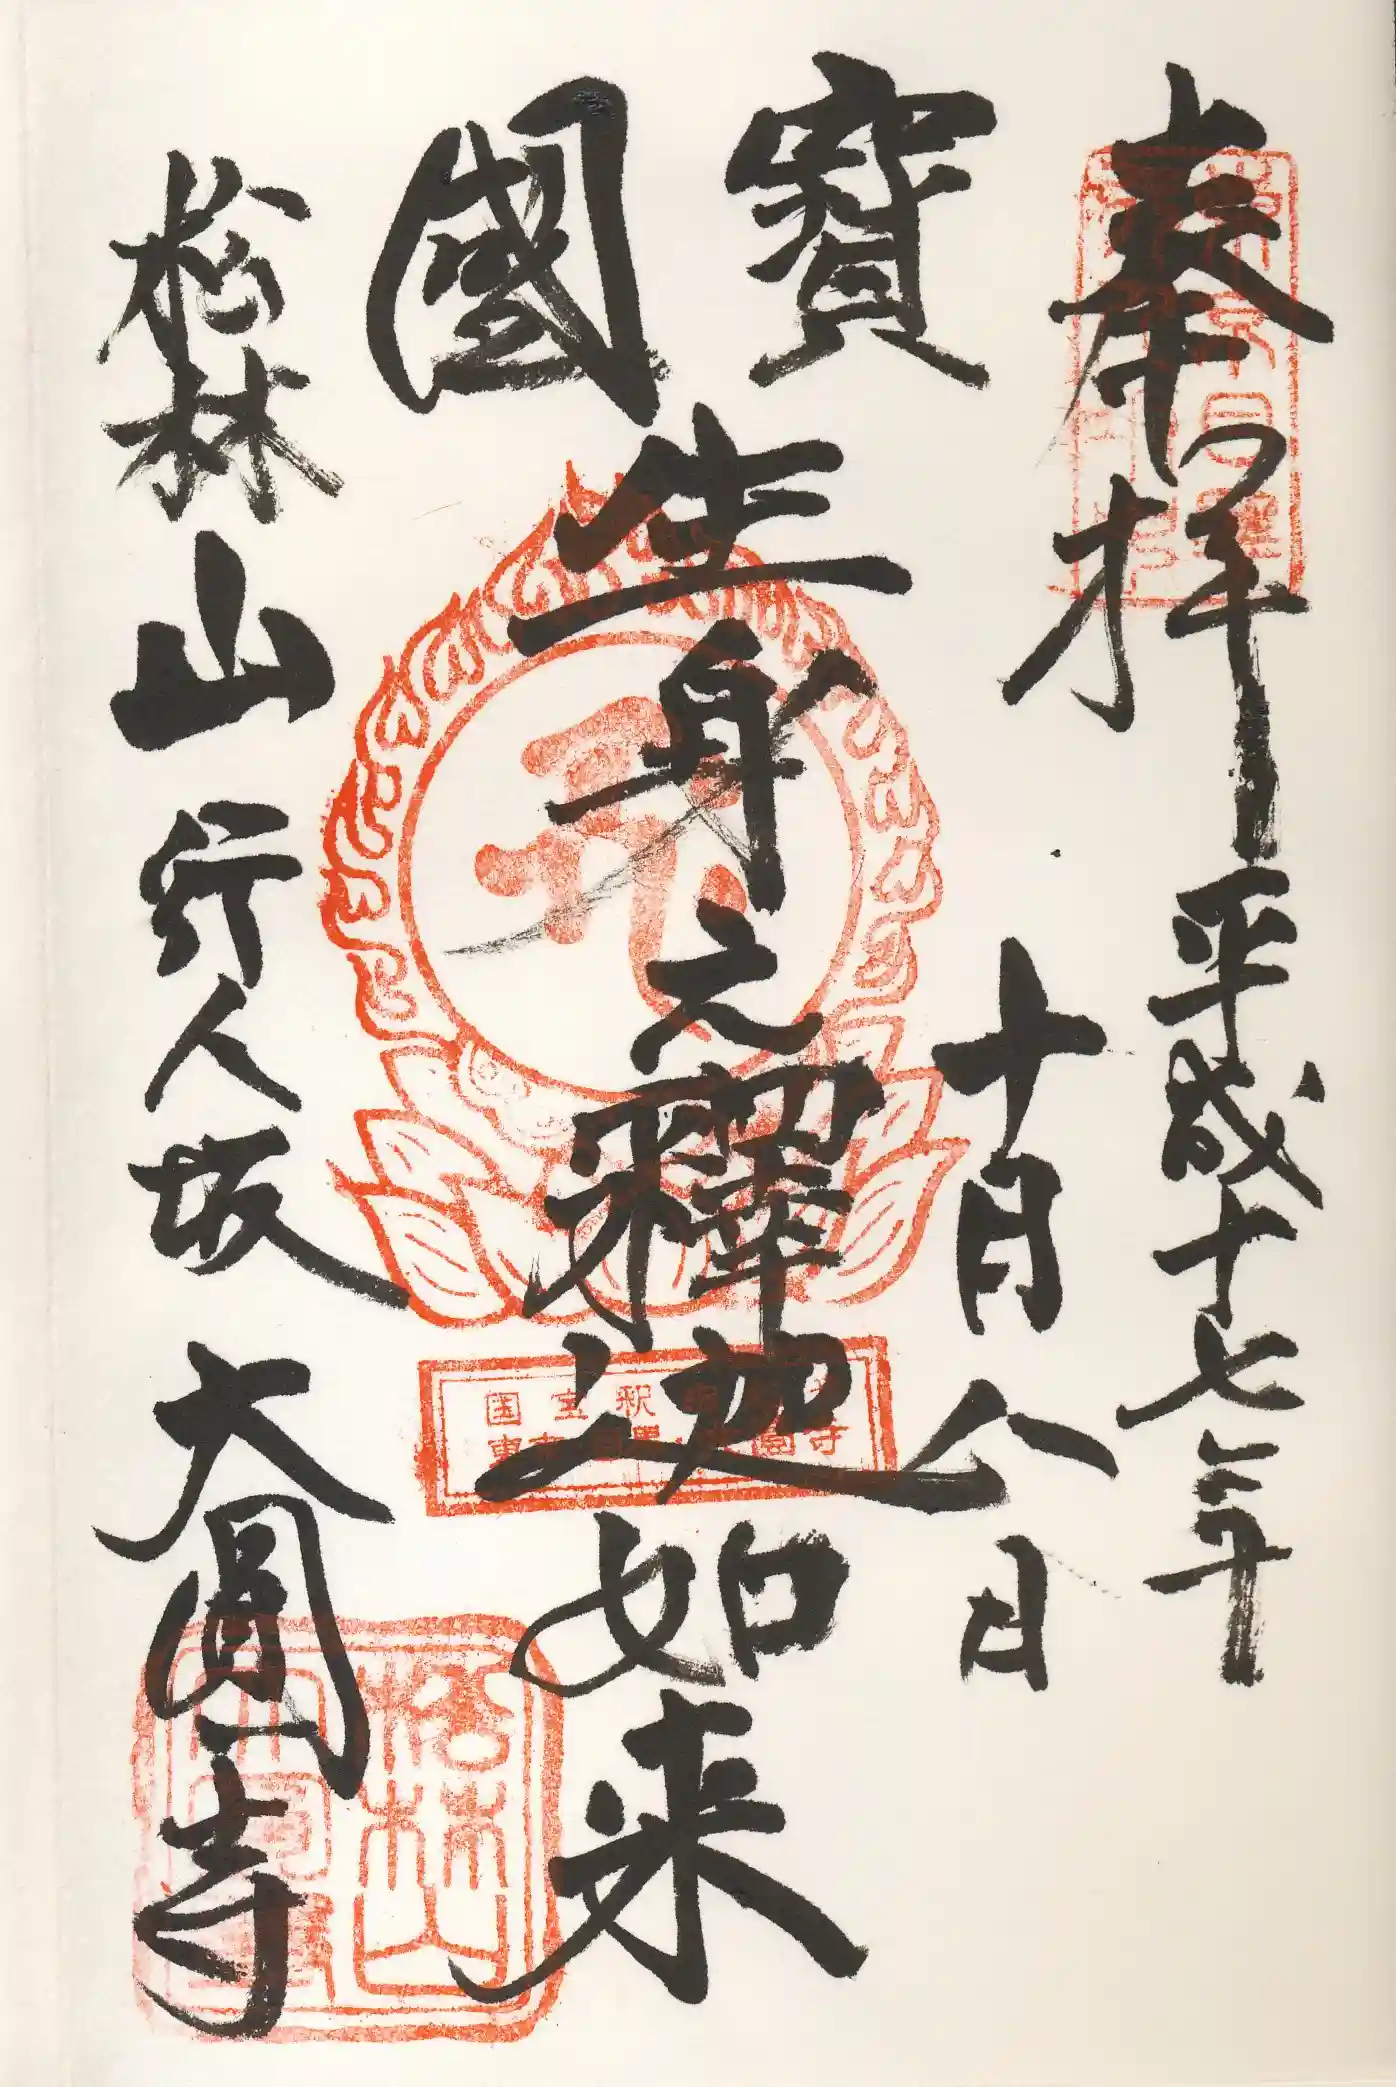 奉拝
平成十七年
十月八日
國寶
生身之釋迦如来
松林山
行人坂
大圓寺
国宝釈
寺
松林山